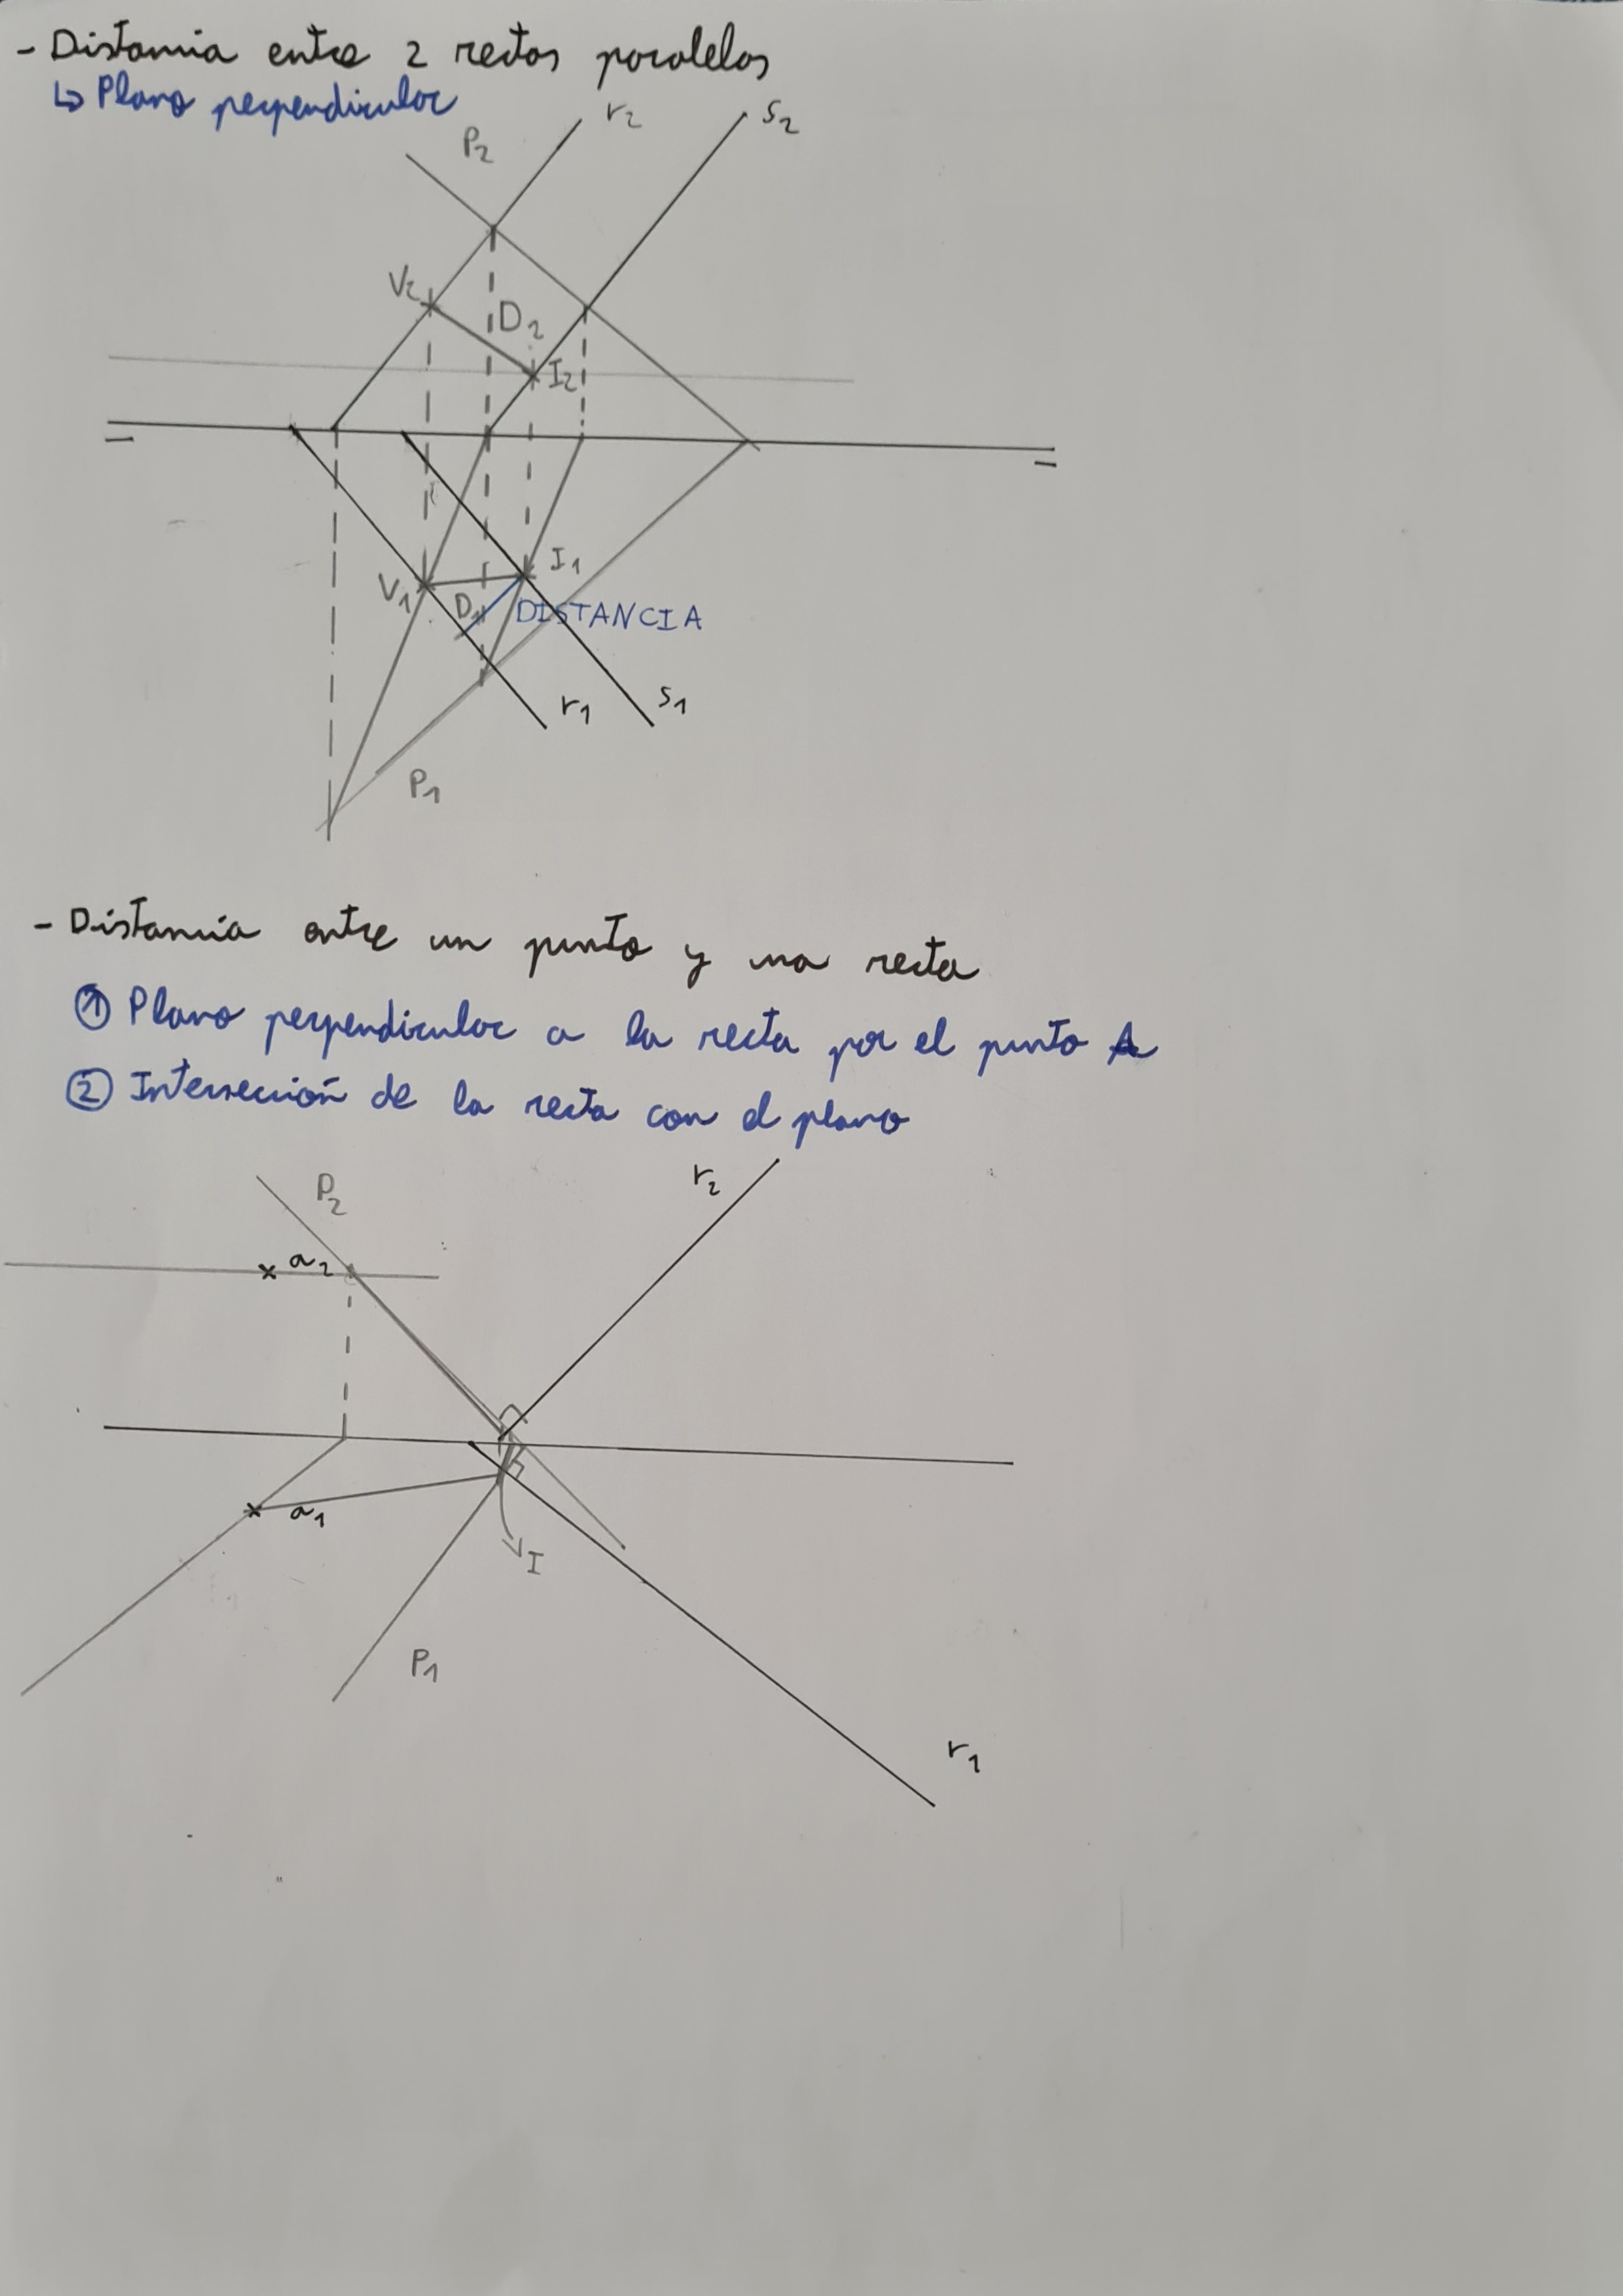 - Distancia entre 2 rectas paralelas
↳ Plano perpendicular
r2
s2
P2
V2
D2
I2
I1
V1
D1
DISTANCIA
r1
s1
P1
- Distancia entre un punto y una recta
① Plano perpendicular a la recta por el punto A
② Intersección de la recta con el plano
P2
r2
a2
a1
I
P1
r1